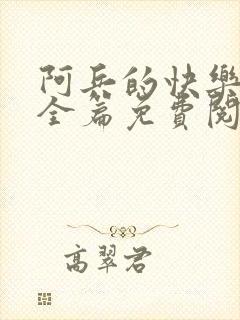 阿兵的快樂
全篇免費閱
高翠君